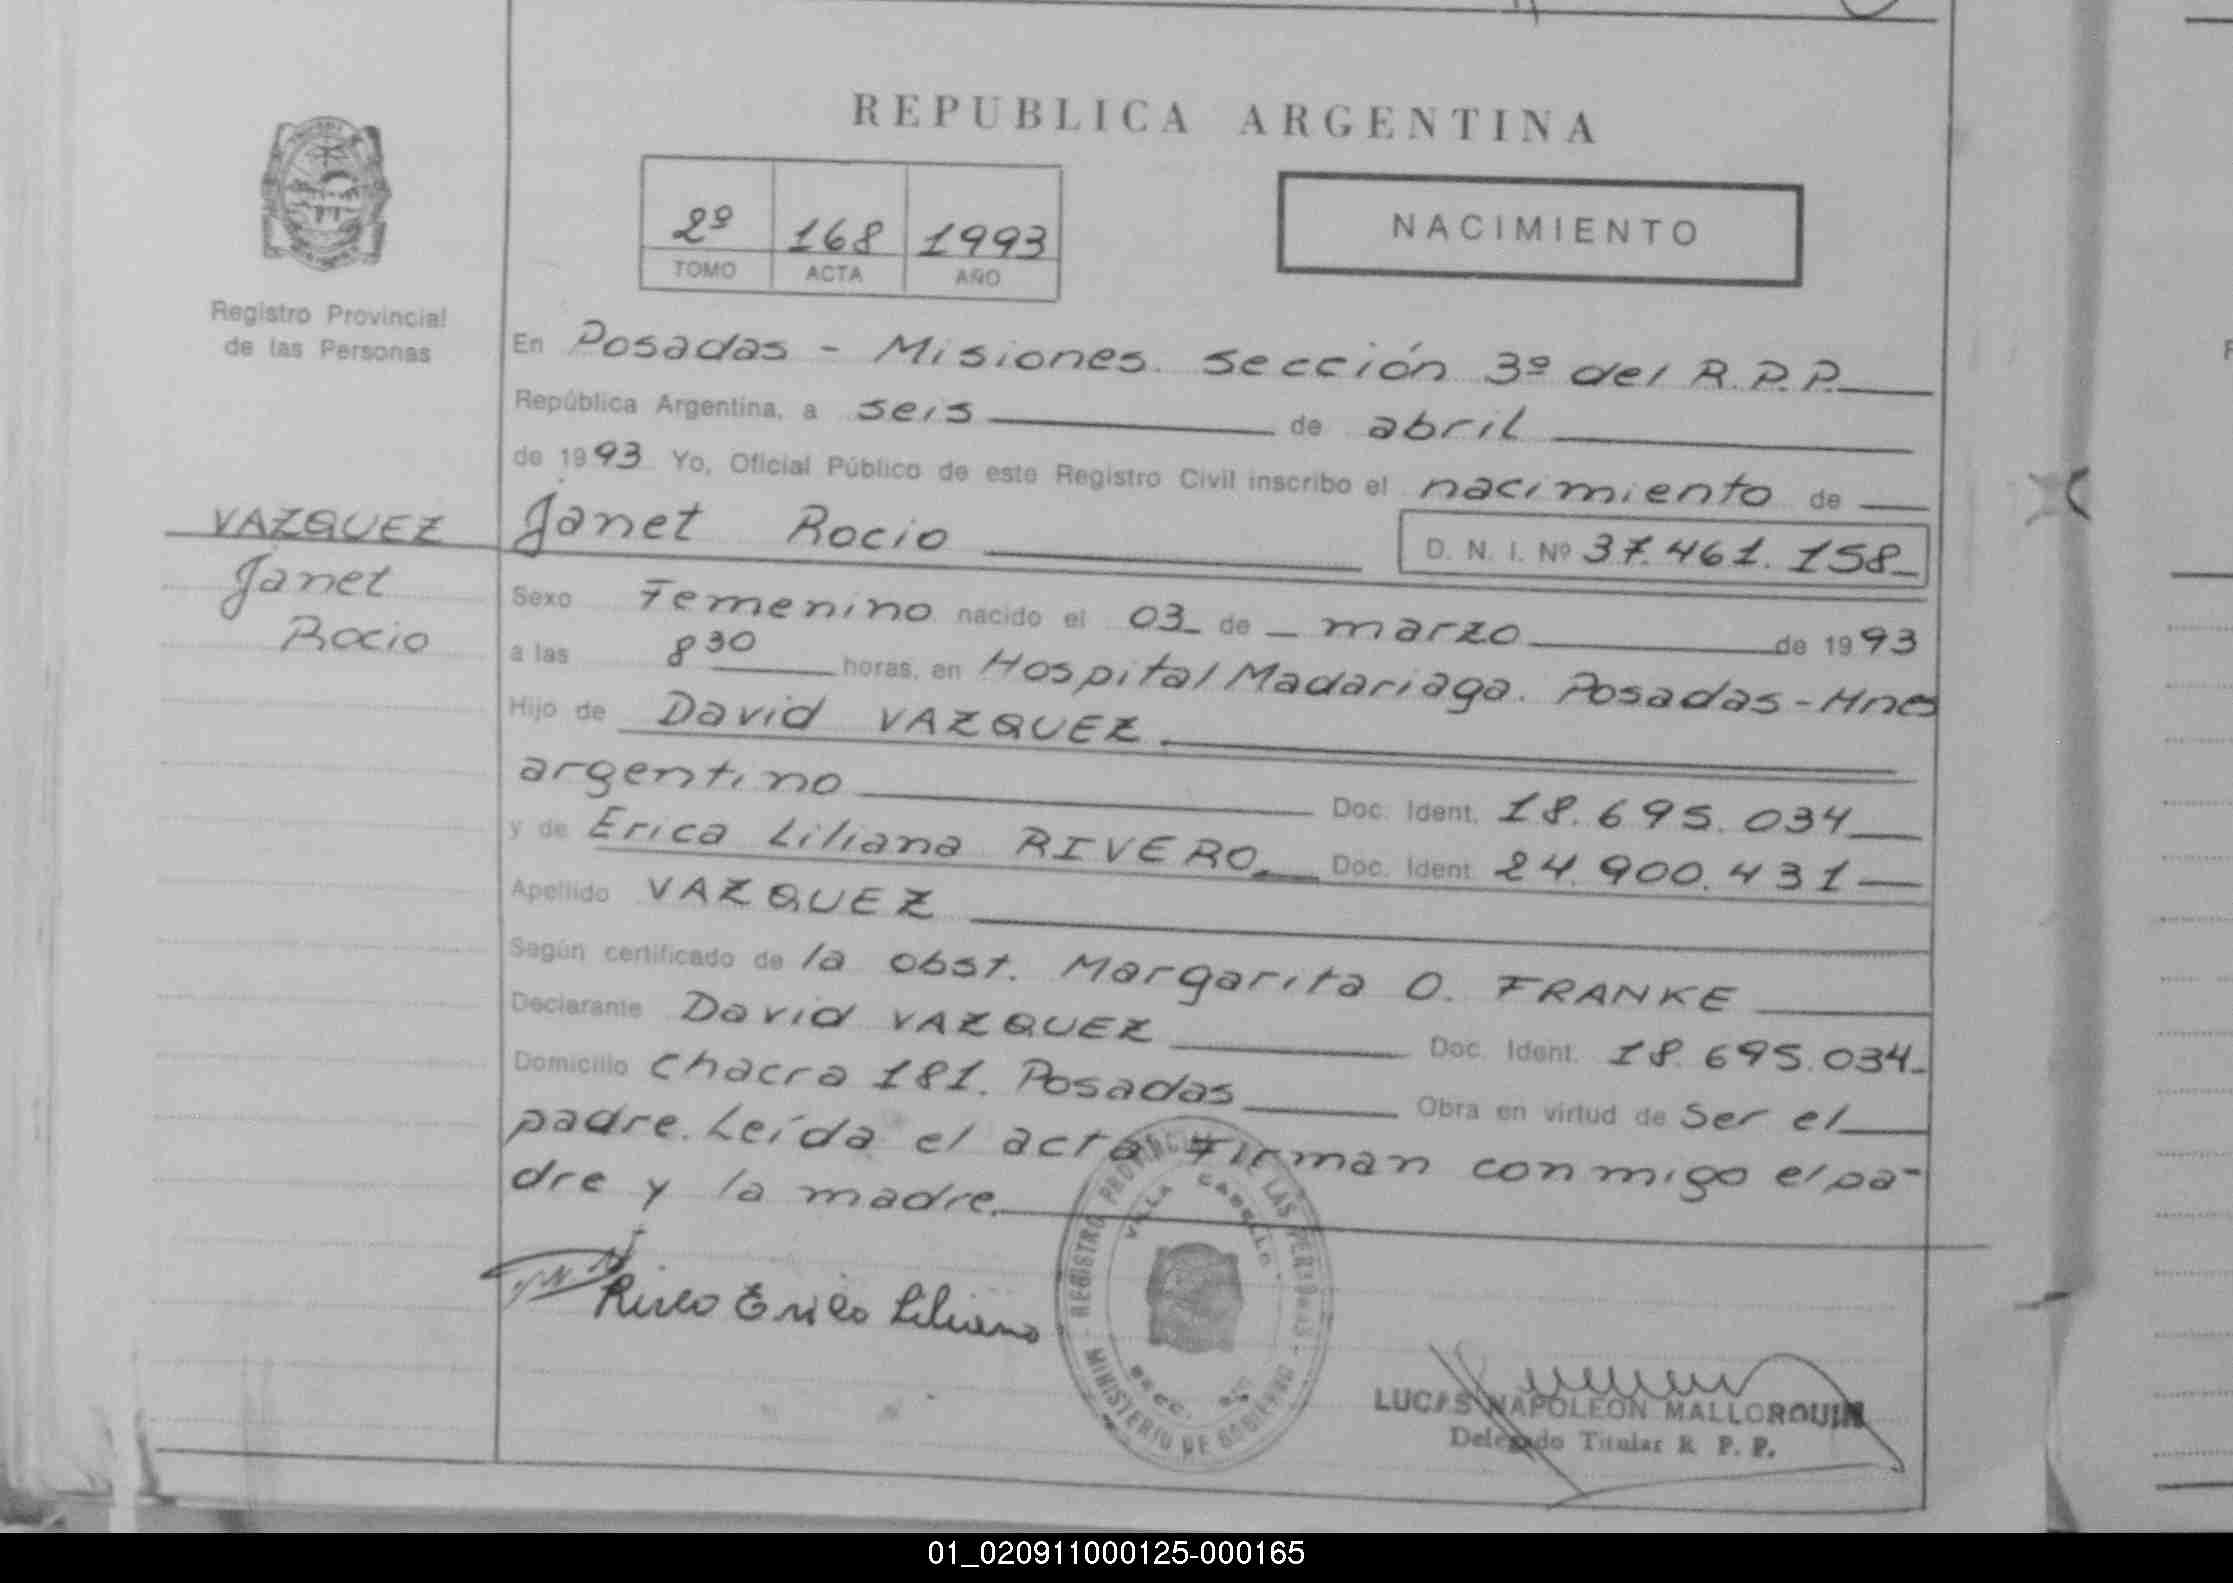 REPUBLICA ARGENTINA
2º 168 1993
TOMO ACTA AÑO
NACIMIENTO
Registro Provincial
de las Personas
VAZQUEZ
Janet
Rocio
En Posadas - Misiones. Sección 3º del R.P.P.
República Argentina, a seis de abril
de 1993 Yo, Oficial Público de este Registro Civil inscribo el nacimiento de
Janet Rocio D. N. I. Nº 37.461.158
Sexo Femenino nacido el 03 de marzo de 1993
a las 8 30 horas, en Hospital Madariaga. Posadas - Mnes
Hijo de David VAZQUEZ
argentino Doc. Ident. 18.695.034
y de Erica Liliana RIVERO Doc. Ident. 24.900.431
Apellido VAZQUEZ
Según certificado de la obst. Margarita O. FRANKE
Declarante David VAZQUEZ Doc. Ident. 18.695.034
Domicilio Chacra 181. Posadas Obra en virtud de Ser el
padre. Leída el acta firman conmigo el pa-
dre y la madre.
REGISTRO PROVINCIAL DE LAS PERSONAS
VILLA CABELLO
SECC.
MINISTERIO DE GOBIERNO
Erica Liliana
LUCAS NAPOLEON MALLORQUIN
Delegado Titular R. P. P.
01_020911000125-000165